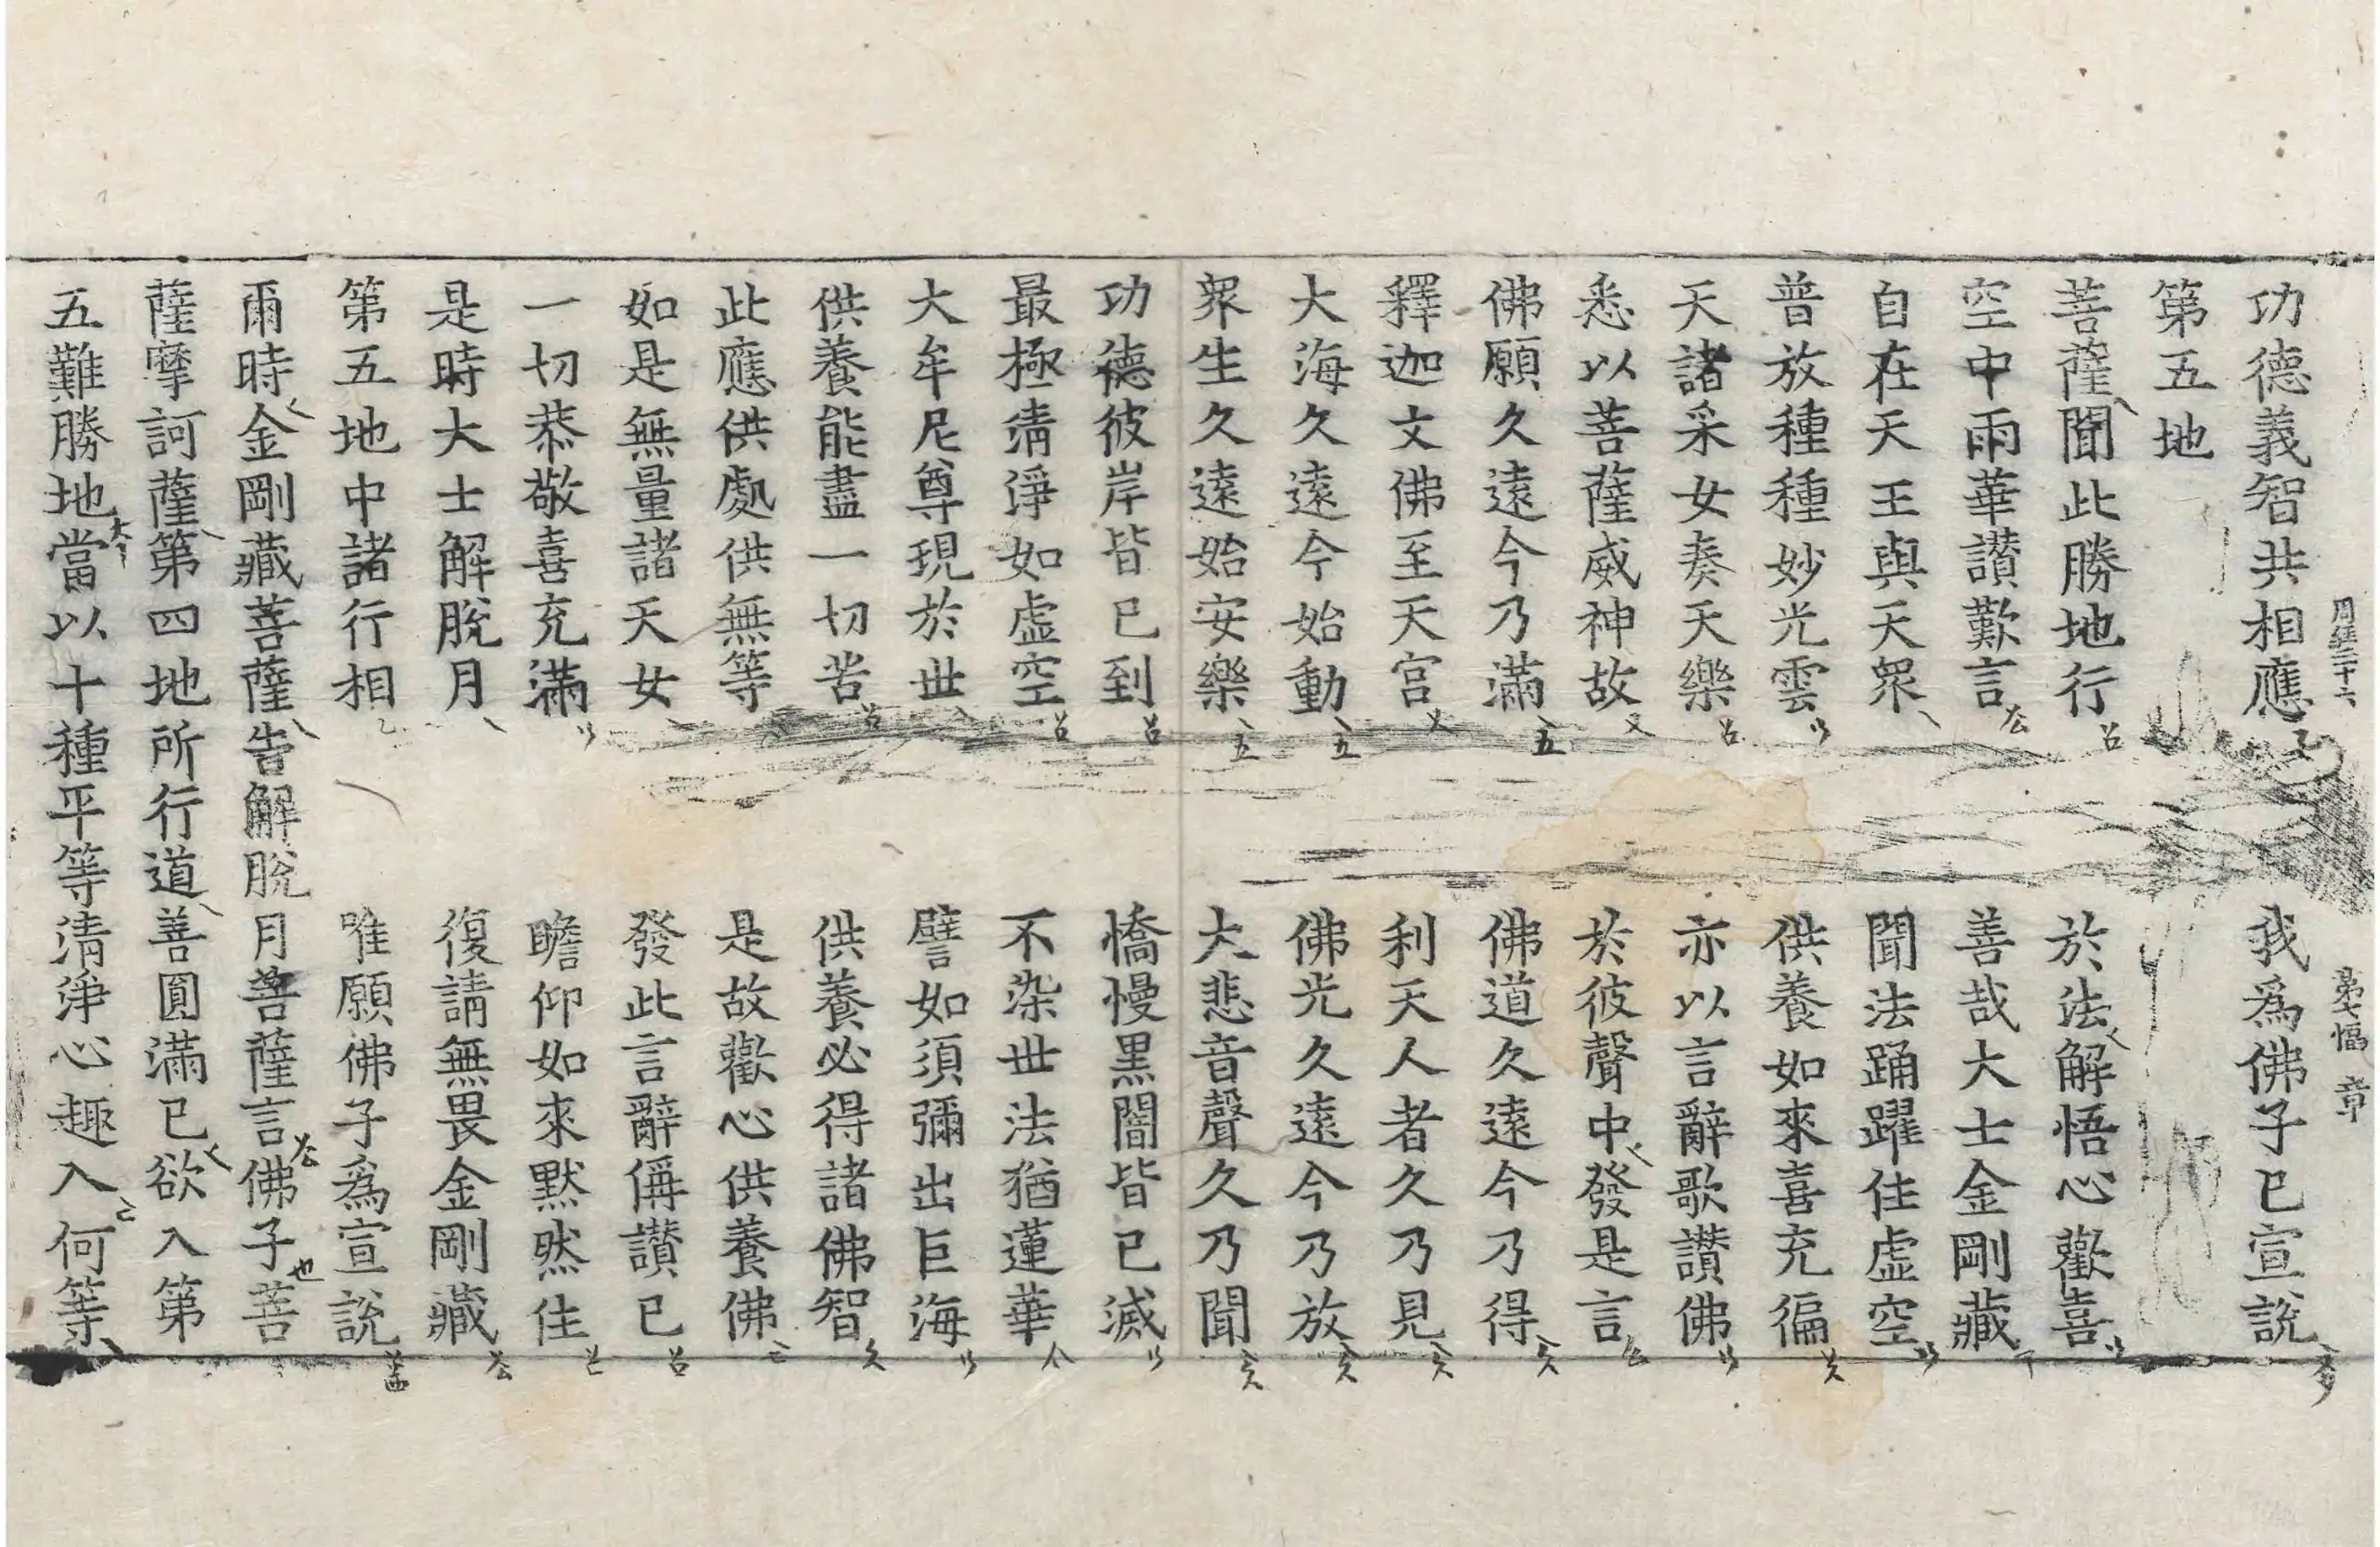 周經三十六 第七幅 章
功德義智共相應 我為佛子已宣說
第五地
菩薩聞此勝地行 於法解悟心歡喜
空中雨華讃歎言 善哉大士金剛藏
自在天王與天眾 聞法踊躍住虛空
普放種種妙光雲 供養如來喜充徧
天諸采女奏天樂 亦以言辭歌讃佛
悉以菩薩威神故 於彼聲中發是言
佛願久遠今乃滿 佛道久遠今乃得
釋迦文佛至天宮 利天人者久乃見
大海久遠今始動 佛光久遠今乃放
眾生久遠始安樂 大悲音聲久乃聞
功德彼岸皆已到 憍慢黑闇皆已滅
最極清淨如虛空 不染世法猶蓮華
大牟尼尊現於世 譬如須彌出巨海
供養能盡一切苦 供養必得諸佛智
此應供處供無等 是故歡心供養佛
如是無量諸天女 發此言辭偁讃已
一切恭敬喜充滿 瞻仰如來默然住
是時大士解脫月 復請無畏金剛藏
第五地中諸行相 唯願佛子為宣說
爾時金剛藏菩薩告解脫月菩薩言佛子菩
薩摩訶薩第四地所行道善圓滿已欲入第
五難勝地當以十種平等清淨心趣入何等